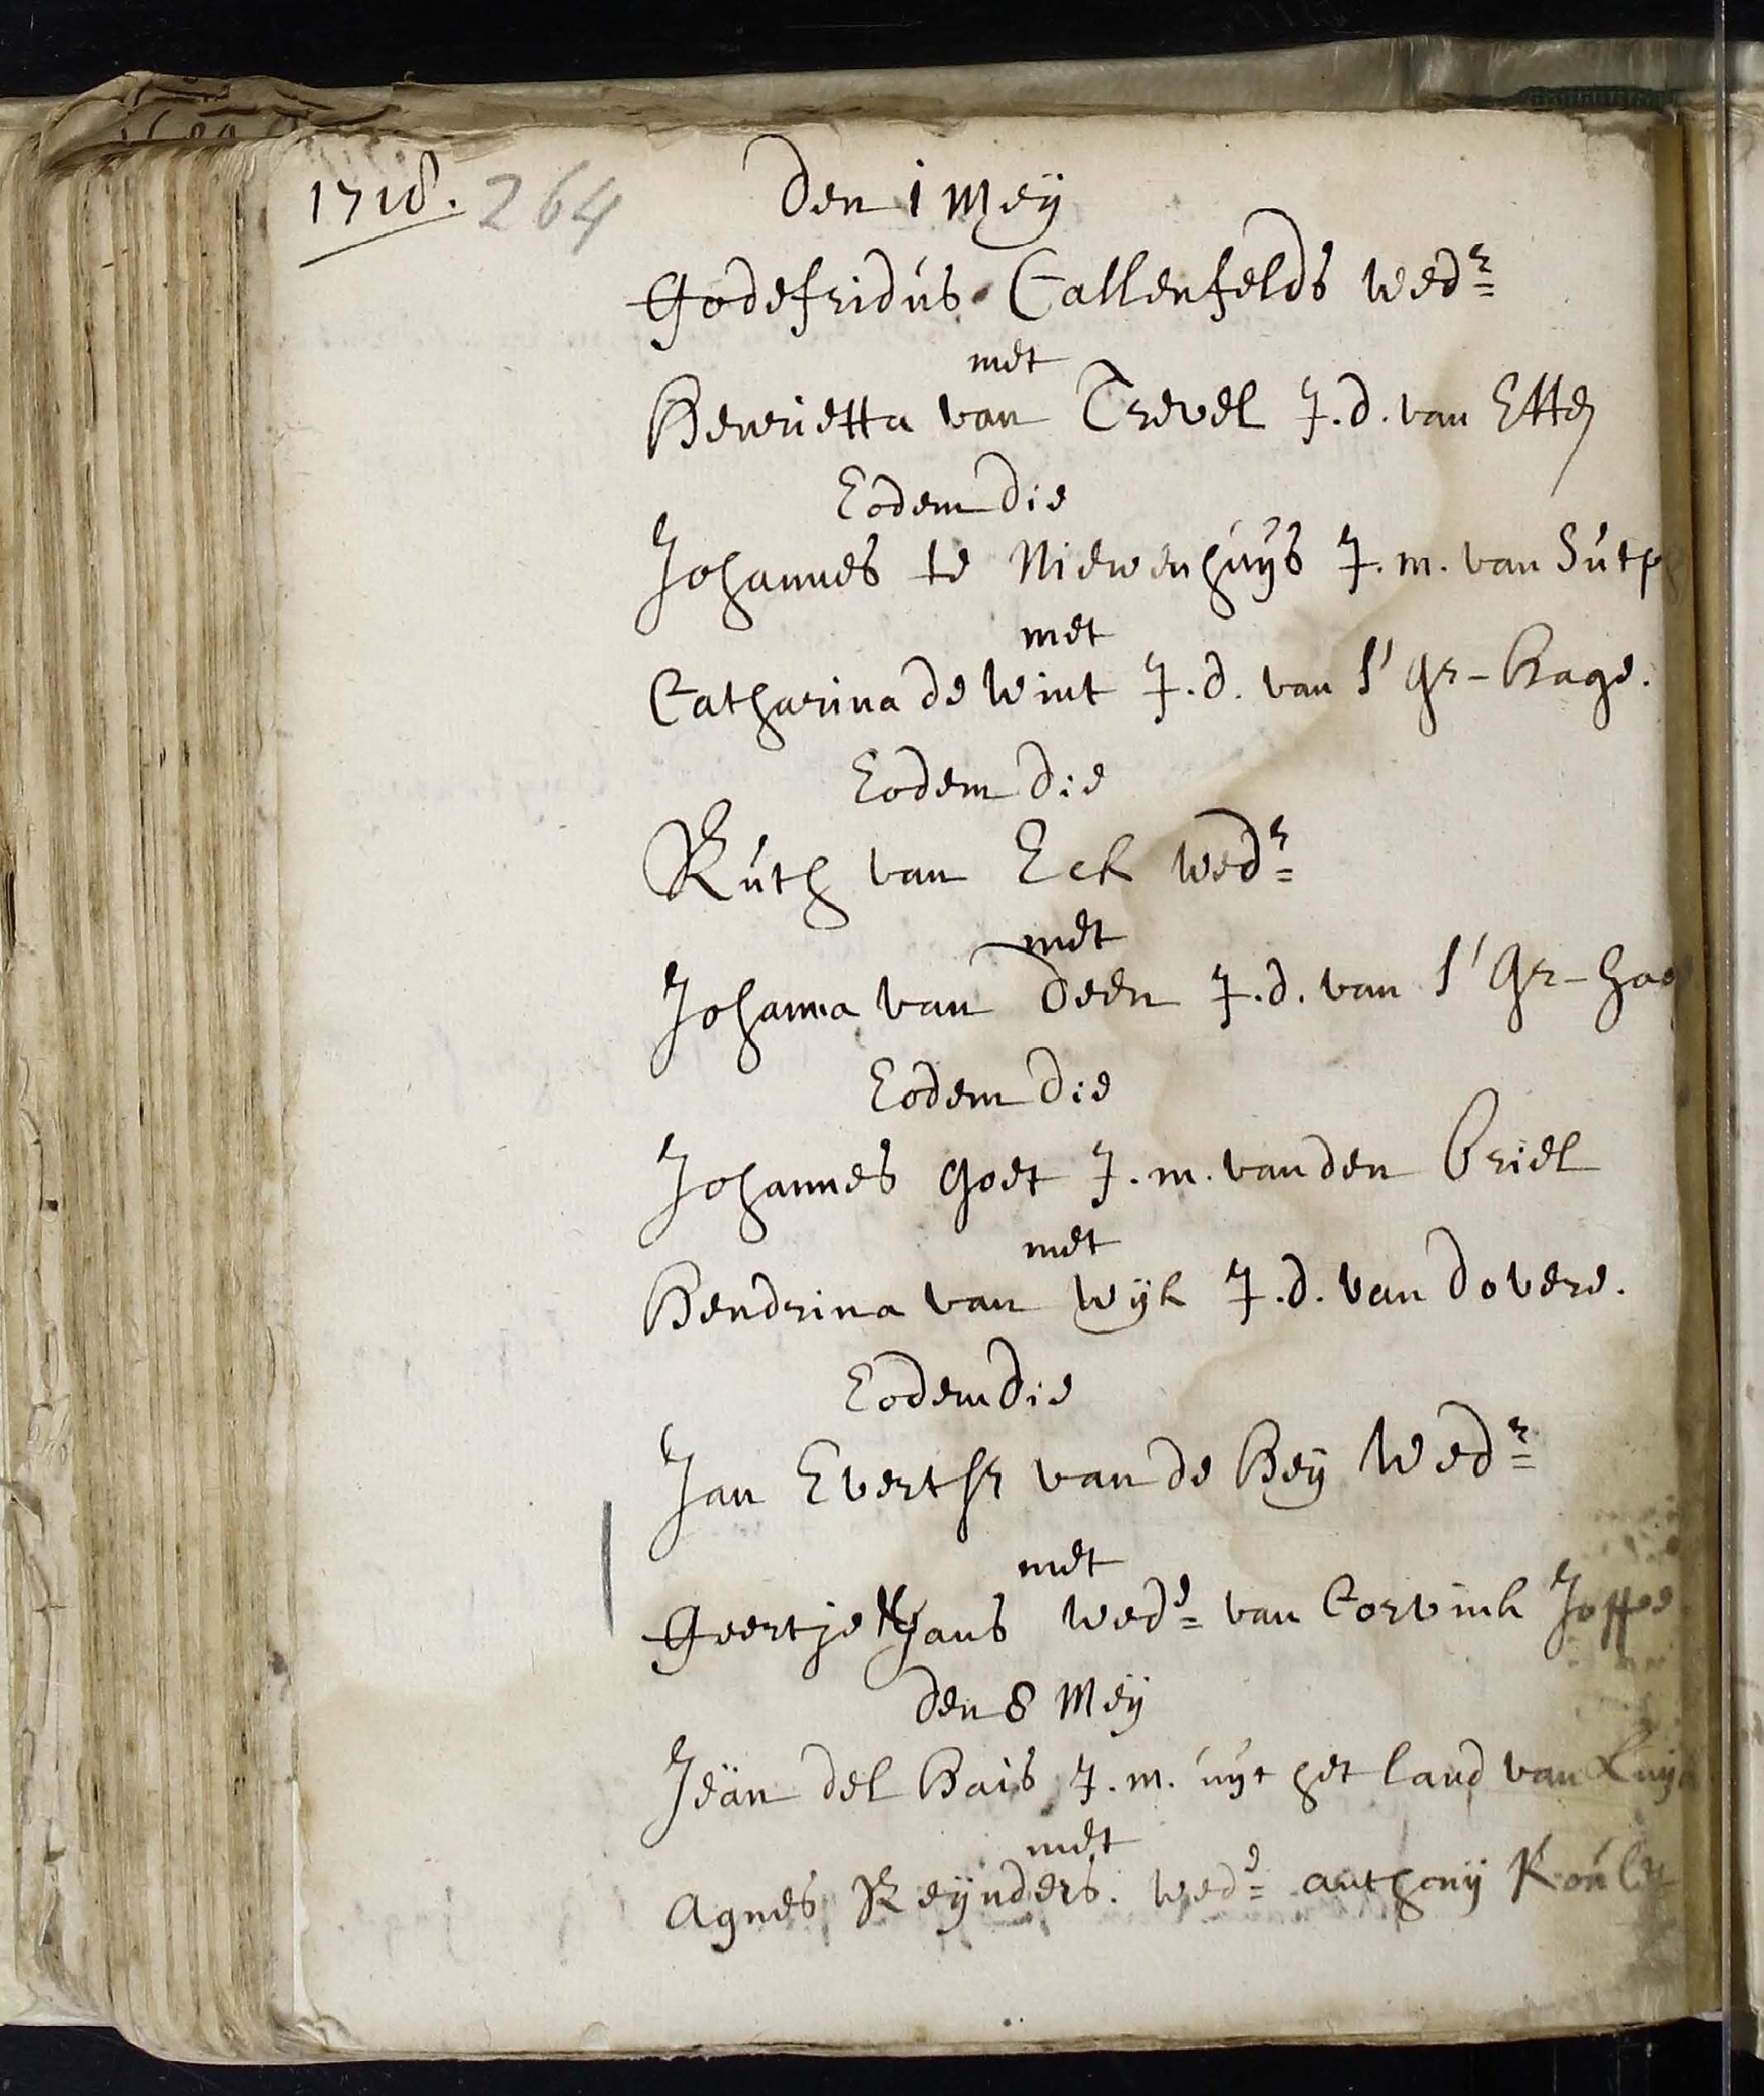 1718. 264 den 1 Meÿ
Godefridus Callenfelds wedr
met
Henrietta van Trevel J.d. van Etten
Eodem die
Johannes te Niewenhuÿs J.m. van Sutp
met
Catharina de Wint J.d. van S'Gr-Hage.
Eodem die
Ruth van Eck wedr
met
Johanna van Deen J.d. van S'Gr-hag
Eodem die
Johannes Goet J.m. van den Briel
met
Hendrina van Wÿk J.d. van Dovere.
Eodem die
Jan Evertsz van de Heÿ Wedr
met
Geertje Jans wede van Corvink Joffes
den 8 Meÿ
Jeän del Hais J.m. uÿt het land van Luÿk
met
Agnes Reÿnders. wede anthonÿ